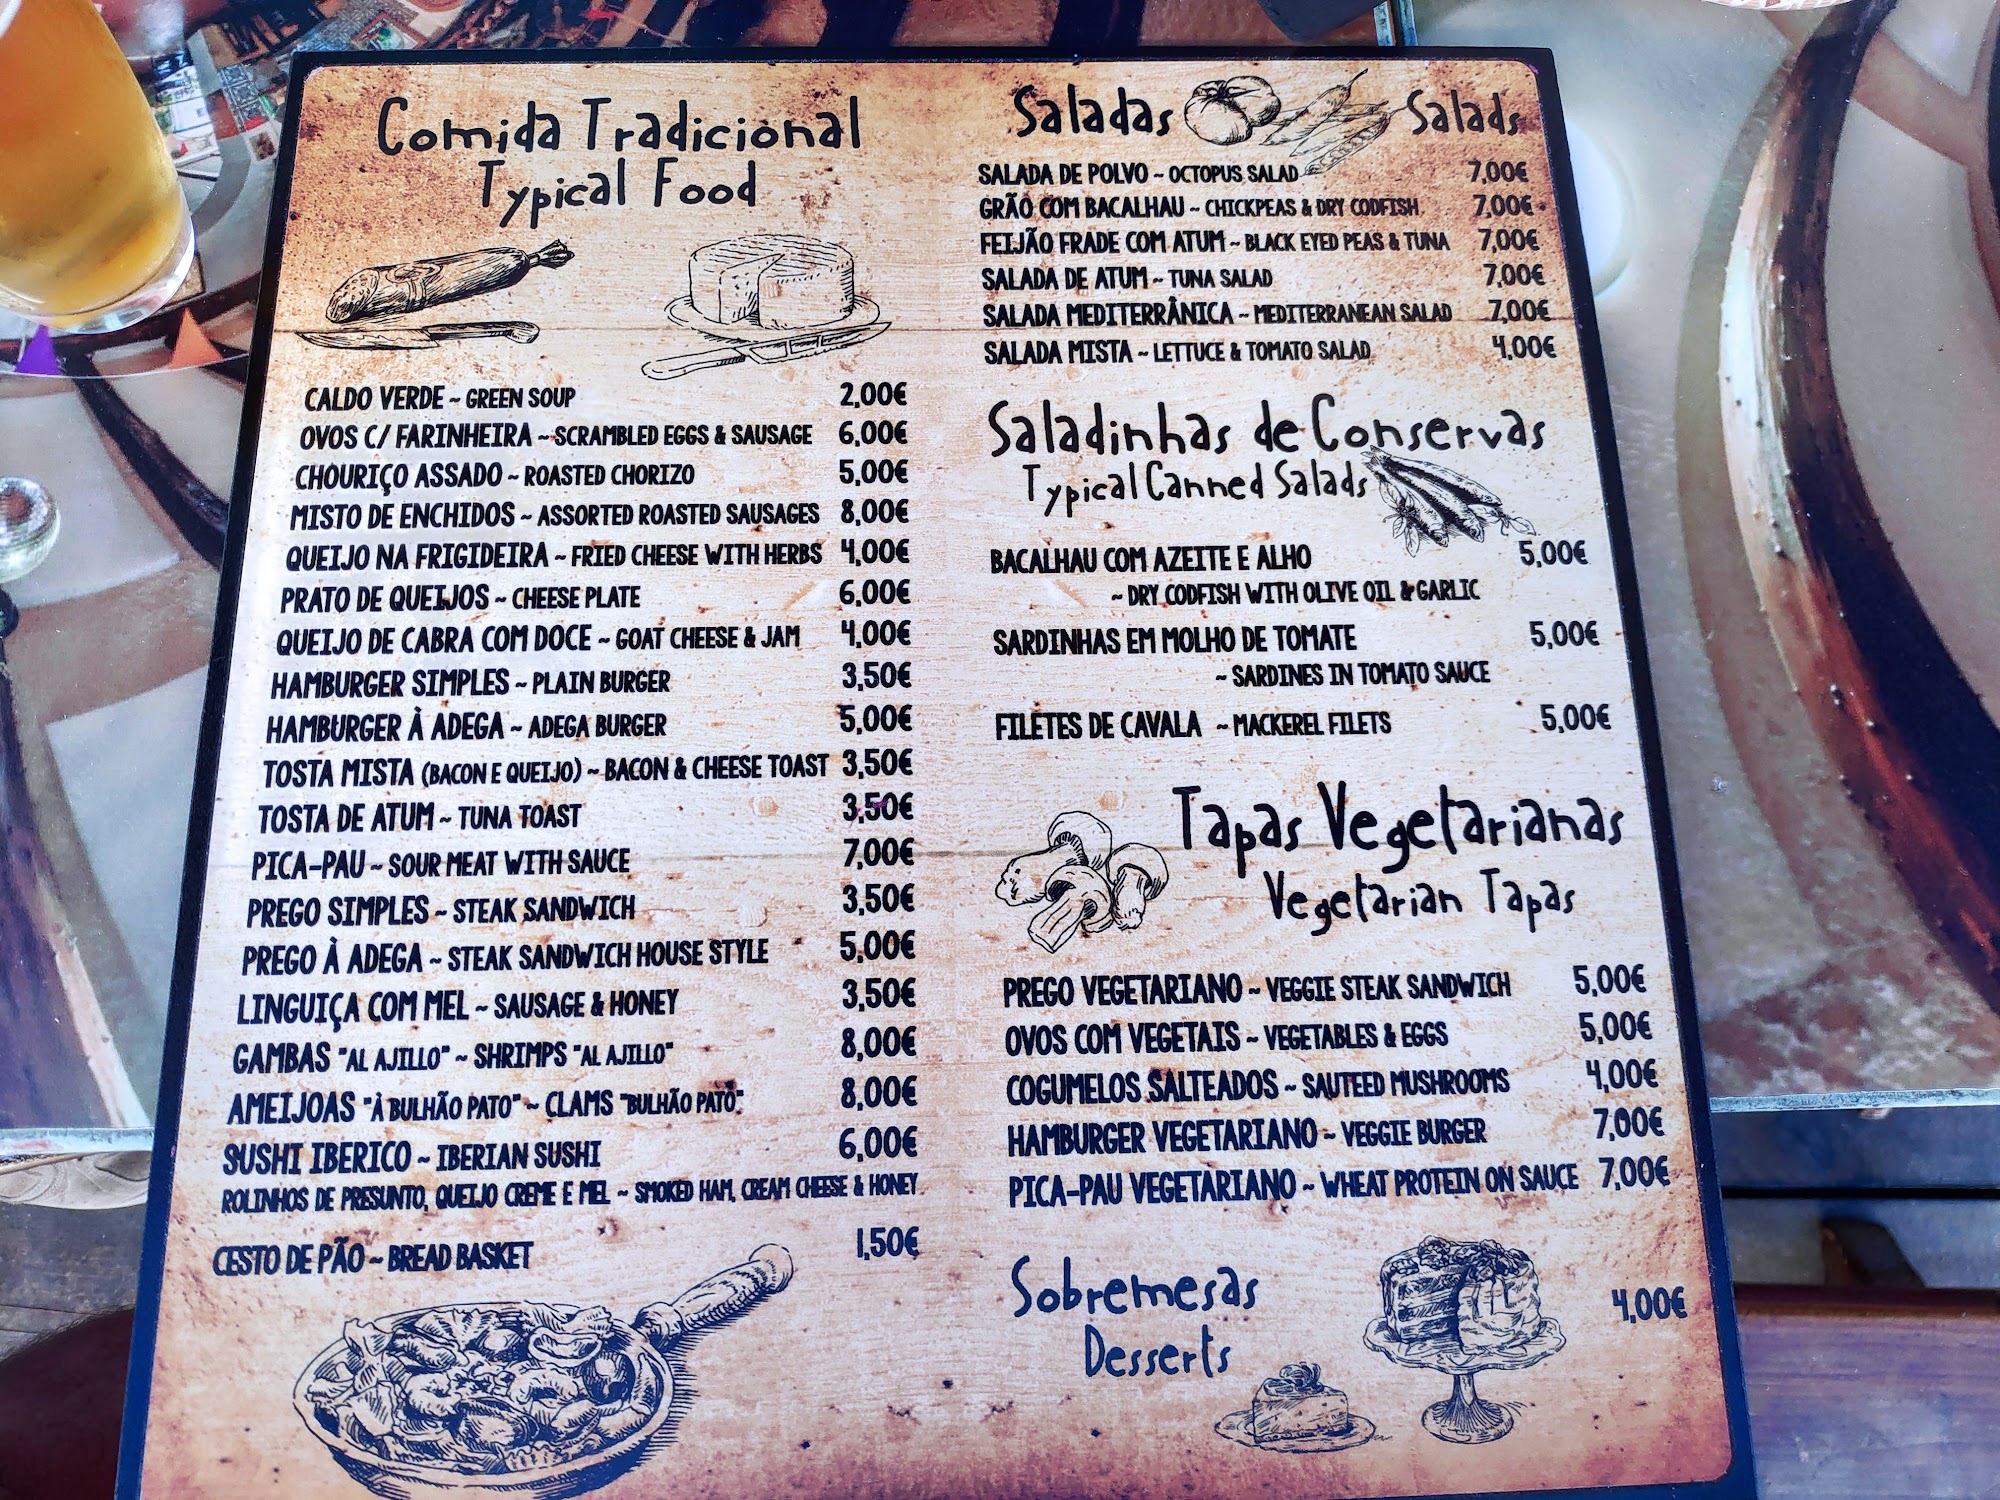 Comida Tradicional
Typical Food
CALDO VERDE ~ GREEN SOUP 2,00€
OVOS C/ FARINHEIRA ~ SCRAMBLED EGGS & SAUSAGE 6,00€
CHOURIÇO ASSADO ~ ROASTED CHORIZO 5,00€
MISTO DE ENCHIDOS ~ ASSORTED ROASTED SAUSAGES 8,00€
QUEIJO NA FRIGIDEIRA ~ FRIED CHEESE WITH HERBS 4,00€
PRATO DE QUEIJOS ~ CHEESE PLATE 6,00€
QUEIJO DE CABRA COM DOCE ~ GOAT CHEESE & JAM 4,00€
HAMBURGER SIMPLES ~ PLAIN BURGER 3,50€
HAMBURGER À ADEGA ~ ADEGA BURGER 5,00€
TOSTA MISTA (BACON E QUEIJO) ~ BACON & CHEESE TOAST 3,50€
TOSTA DE ATUM ~ TUNA TOAST 3,50€
PICA-PAU ~ SOUR MEAT WITH SAUCE 7,00€
PREGO SIMPLES ~ STEAK SANDWICH 3,50€
PREGO À ADEGA ~ STEAK SANDWICH HOUSE STYLE 5,00€
LINGUIÇA COM MEL ~ SAUSAGE & HONEY 3,50€
GAMBAS "AL AJILLO" ~ SHRIMPS "AL AJILLO" 8,00€
AMEIJOAS "À BULHÃO PATO" ~ CLAMS "BULHÃO PATO" 8,00€
SUSHI IBERICO ~ IBERIAN SUSHI 6,00€
ROLINHOS DE PRESUNTO, QUEIJO CREME E MEL ~ SMOKED HAM, CREAM CHEESE & HONEY
CESTO DE PÃO ~ BREAD BASKET 1,50€
Saladas Salads
SALADA DE POLVO ~ OCTOPUS SALAD 7,00€
GRÃO COM BACALHAU ~ CHICKPEAS & DRY CODFISH 7,00€
FEIJÃO FRADE COM ATUM ~ BLACK EYED PEAS & TUNA 7,00€
SALADA DE ATUM ~ TUNA SALAD 7,00€
SALADA MEDITERRÂNICA ~ MEDITERRANEAN SALAD 7,00€
SALADA MISTA ~ LETTUCE & TOMATO SALAD 4,00€
Saladinhas de Conservas
Typical Canned Salads
BACALHAU COM AZEITE E ALHO 5,00€
~ DRY CODFISH WITH OLIVE OIL & GARLIC
SARDINHAS EM MOLHO DE TOMATE 5,00€
~ SARDINES IN TOMATO SAUCE
FILETES DE CAVALA ~ MACKEREL FILETS 5,00€
Tapas Vegetarianas
Vegetarian Tapas
PREGO VEGETARIANO ~ VEGGIE STEAK SANDWICH 5,00€
OVOS COM VEGETAIS ~ VEGETABLES & EGGS 5,00€
COGUMELOS SALTEADOS ~ SAUTEED MUSHROOMS 4,00€
HAMBURGER VEGETARIANO ~ VEGGIE BURGER 7,00€
PICA-PAU VEGETARIANO ~ WHEAT PROTEIN ON SAUCE 7,00€
Sobremesas 4,00€
Desserts